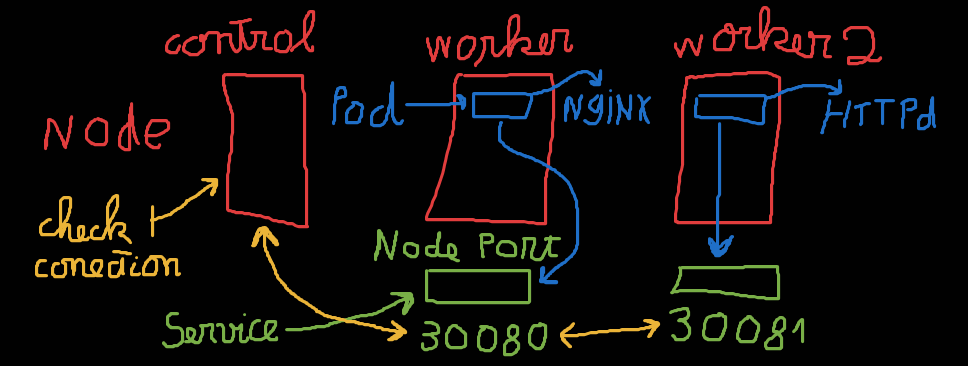 control
worker
worker 2
Pod
NgiNX
HTTPd
NOde
check
conection
Node Port
Service
30080
30081